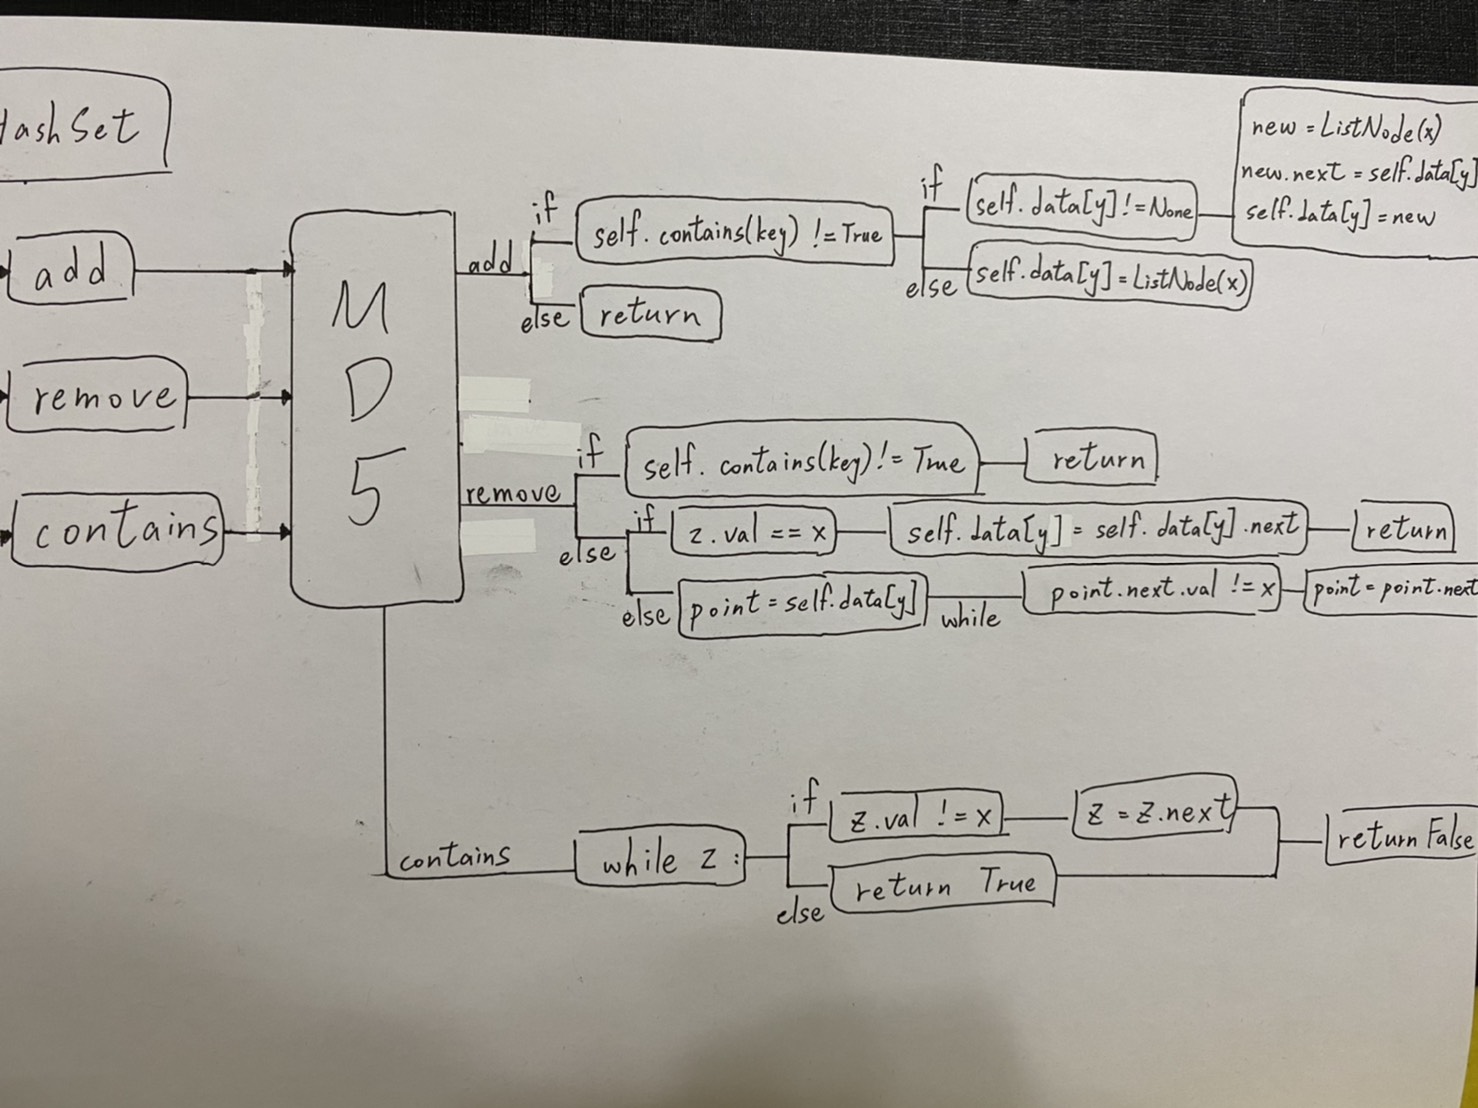 HashSet
add
remove
contains
M
D
5
add
if
self.contains(key) != True
else
return
if
self.data[y] != None
else
self.data[y] = ListNode(x)
new = ListNode(x)
new.next = self.data[y]
self.data[y] = new
remove
if
self.contains(key) != True
return
else
if
z.val == x
self.data[y] = self.data[y].next
return
else
point = self.data[y]
while
point.next.val != x
point = point.next
contains
while z :
if
z.val != x
z = z.next
else
return True
return False